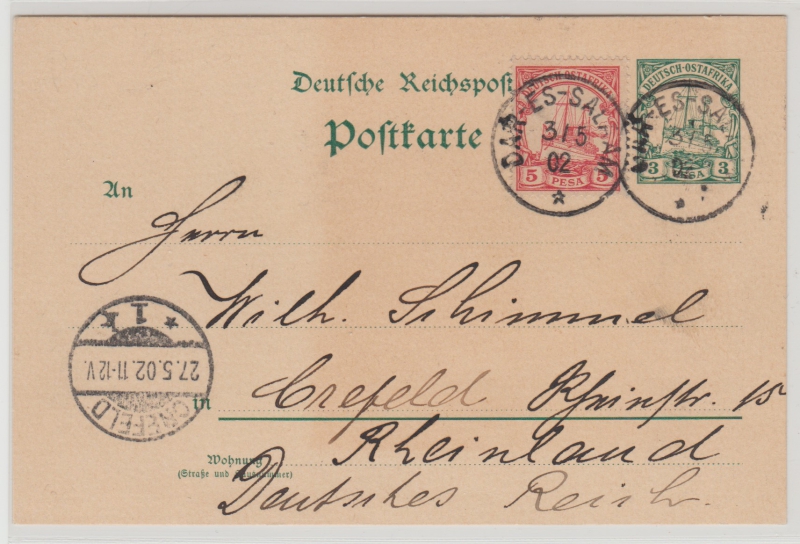 Deutsche Reichspost
Postkarte
DEUTSCH-OSTAFRIKA
5 PESA 5
DEUTSCH-OSTAFRIKA
3 PESA 3
DAR-ES-SALAAM
3/5
02
DAR-ES-SALAAM
3/5
02
An
Herrn
Wilh. Schimmel
in Crefeld Rheinstr. 15
Rheinland
Wohnung
(Straße und Hausnummer)
Deutsches Reich.
CREFELD
27.5.02.11-12V.
1 k